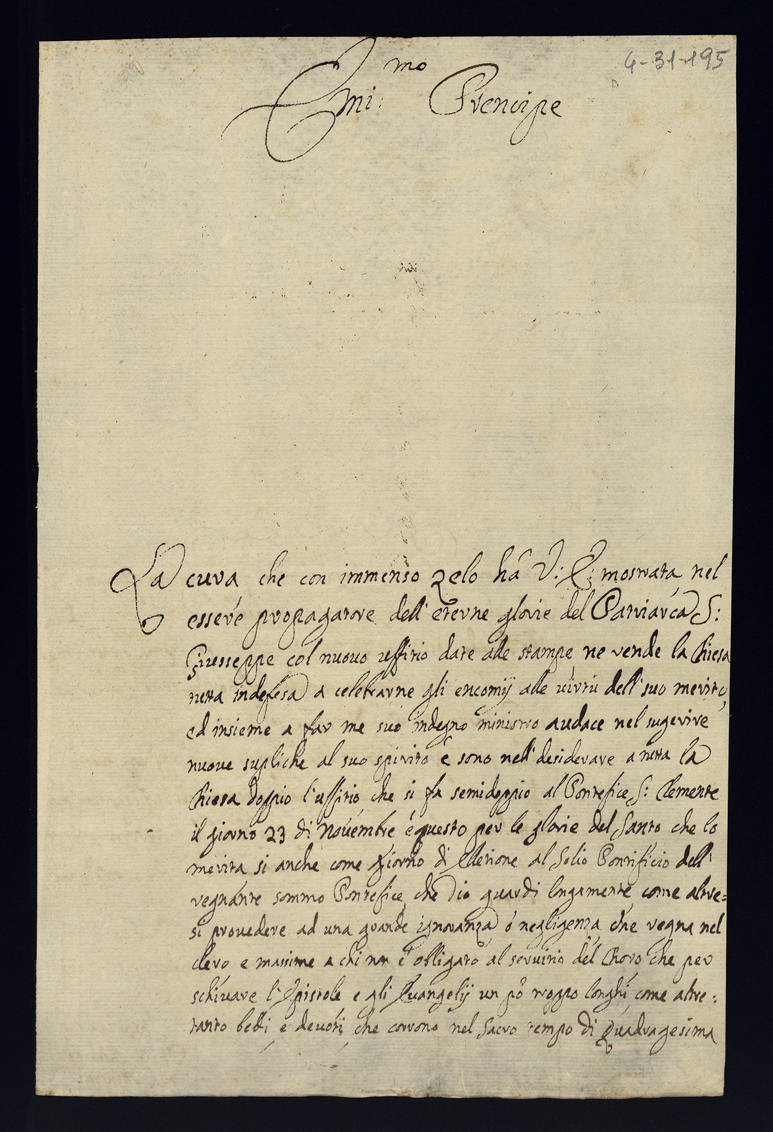 4-31-195
Emi:mo Prencipe
La cura che con immenso zelo hà V: E: mostrata nel
essere propagatore dell'eterne glorie del Patriarca S:
Giuseppe col nuovo uffitio dato alle stampe ne rende la Chiesa
tutta indefesa a celebrarne gli encomij alle virtù dell'suo merito,
ed insieme a far me suo indegno ministro audace nel sugerire
nuove supliche al suo spirito e sono nell'desiderare a tutta la
Chiesa doppio l'uffitio che si fa semidoppio al Pontefice S: Clemente
il giorno 23 di Novembre è questo per le glorie del Santo che lo
merita si anche come Giorno di Eletione al Solio Pontificio dell'
regnante sommo Pontefice che Dio guardi longamente come altre=
si provedere ad una grande ignoranza ò negligenza che regna nel
clero e massime a chi non è obligato al servitio del Choro che per
schivare l'Epistole e gli Evangelij un pò troppo longhi come altre:
tanto belli e devoti che corrono nel Sacro tempo di Quadragesima